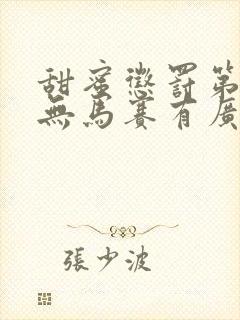 甜蜜懲罰第
無馬賽有廣
張少波